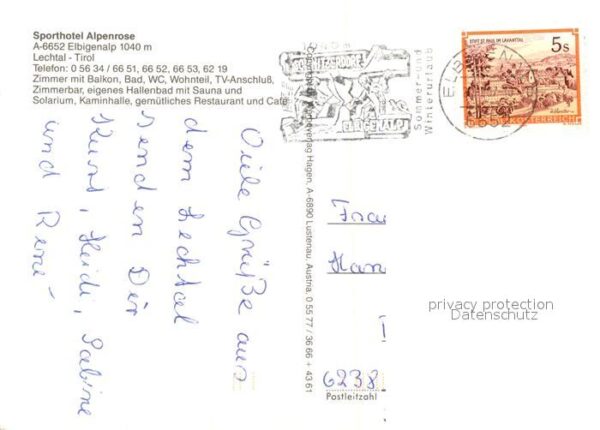 Sporthotel Alpenrose
A-6652 Elbigenalp 1040 m
Lechtal - Tirol
Telefon: 0 56 34 / 66 51, 66 52, 66 53, 62 19
Zimmer mit Balkon, Bad, WC, Wohnteil, TV-Anschluß,
Zimmerbar, eigenes Hallenbad mit Sauna und
Solarium, Kaminhalle, gemütliches Restaurant und Café
Viele Grüße aus
dem Lechtal
senden Dir
Kurt, Heidi, Sabine
und René
Hagen, A-6890 Lustenau, Austria, 0 55 77 / 36 66 + 43 61
ELBIGENALP
Sommer- und
Winterurlaub
STIFT ST. PAUL IM LAVANTTAL
5s
REPUBLIK ÖSTERREICH
Frau
Han
6238
Postleitzahl
privacy protection
Datenschutz